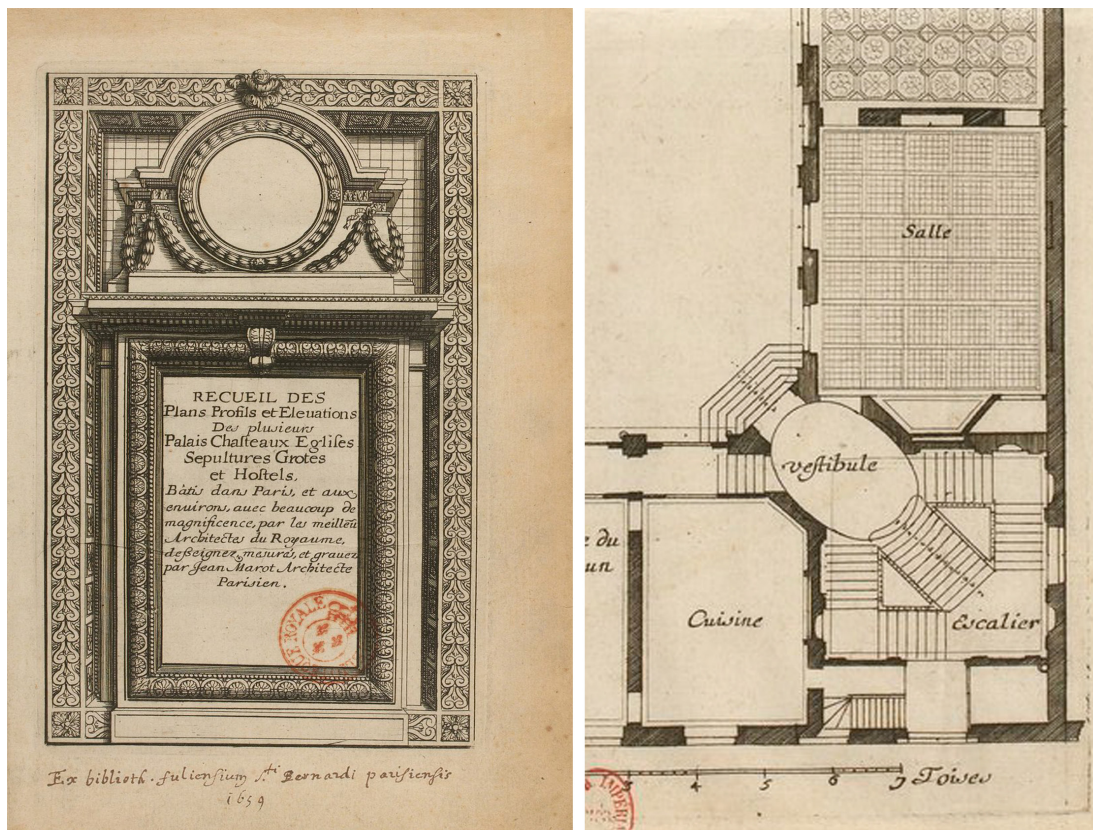 RECUEIL DES
Plans Profils et Eleuations
Des plusieurs
Palais Chaſteaux Egliſes
Sepultures Grotes
et Hoſtels,
Bâtis dans Paris, et aux
enuirons, auec beaucoup de
magnificence, par les meilleũ
Architectes du Royaume,
deſseignez, mesurés, et grauez
par Jean Marot Architecte
Parisien.
ROYALE
Ex biblioth. fuliensium Sti Bernardi parisiensis
1659
Salle
veſtibule
e du
un
Cuisine
Escalier
3 4 5 6 7 Toises
IMPERI